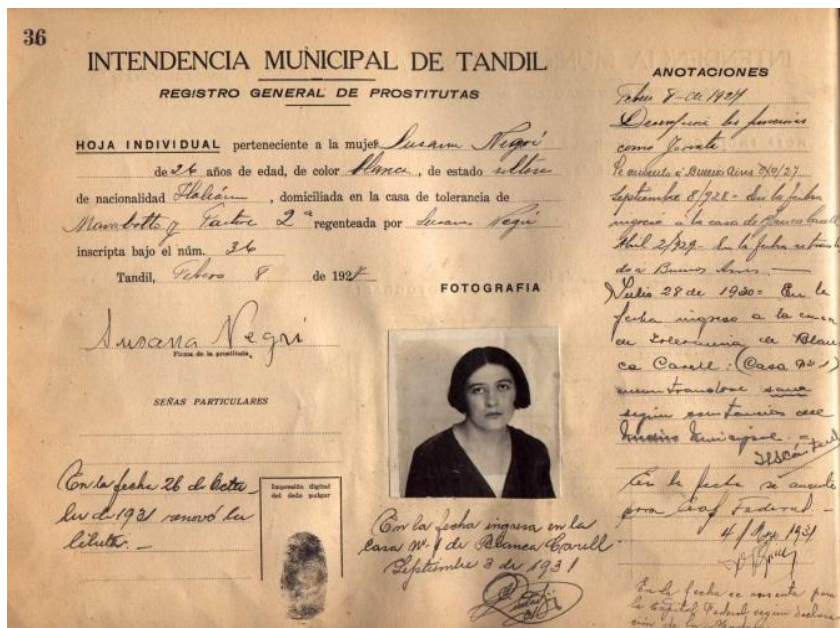 36
INTENDENCIA MUNICIPAL DE TANDIL
REGISTRO GENERAL DE PROSTITUTAS
HOJA INDIVIDUAL perteneciente a la mujer Susana Negri
de 26 años de edad, de color blanca, de estado soltera
de nacionalidad Italiana, domiciliada en la casa de tolerancia de
y 2ª regenteada por Susana Negri
inscripta bajo el núm. 36
Tandil, Febrero 8 de 192
Susana Negri
Firma de la prostituta
SEÑAS PARTICULARES
En la fecha 26 de Octu-
bre de 1931 renovó la
libreta.-
Impresión digital
del dedo pulgar
FOTOGRAFIA
En la fecha ingresa en la
casa Nº 1 de Blanca Carell
Septiembre 3 de 1931
ANOTACIONES
Febrero 8 de 1927
las funciones
como
Se ausentó a Buenos Aires /27
Septiembre 8/928 - En la fecha
ingresó a la casa de Blanca Carell
Abril 2/929 - En la fecha
a Buenos Aires.-
Julio 28 de 1930 = En la
fecha ingresa a la casa
de tolerancia de Blan-
ca Carell: (Casa Nº 1)
encontrandose sana
según constancia del
Municipal.=
En la fecha se ausenta
para Cap Federal -
4/ 1931
En la fecha se ausenta para
la Capital Federal según declara-
ción de la